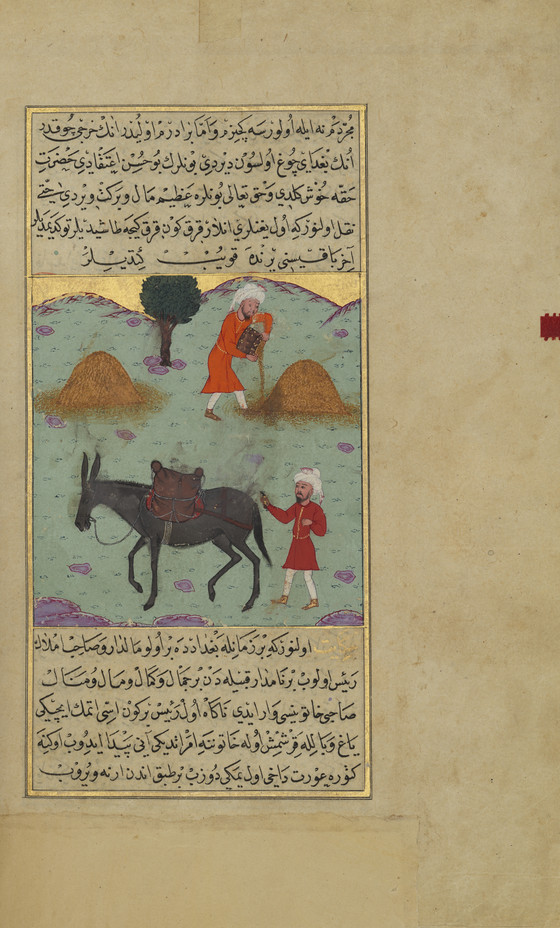 مجرّدم نه ایله اولورسه کچنرم و امّا برادرم اولیدر انك خرجی چوقدر
انك بغدایی چوغ اولسون دیردی بونلرك بو حسن اعتقادی حضرت
حقه خوش کلدی و حق تعالی بونلره عظیم مال و برکت ویردی شیخی
نقل اولنور که اول یغنلری انلار قرق کون قرق کیجه طاشیدیلر توکدیمدیلر
آخر باقیسنی یرنده قویب کتدیلر
اولنور که بر زمانله بغدادده بر اولو مالدار و صاحب املاك
رئیس اولوب بر نامدار قبیله دن بر جمال و کمال و مال و منال
صاحبی خاتونیسی وار ایدی ناکاه اول رئیس بر کون اسّی اتمك ایچیکی
یاغ و بالله قرشمش اوله خاتوننه امر اتدیکی آنی پیدا ایدوب اوکنه
کتوره عورت داخی اول یمکی دوزب بر طبق اندن ارنه ویروب